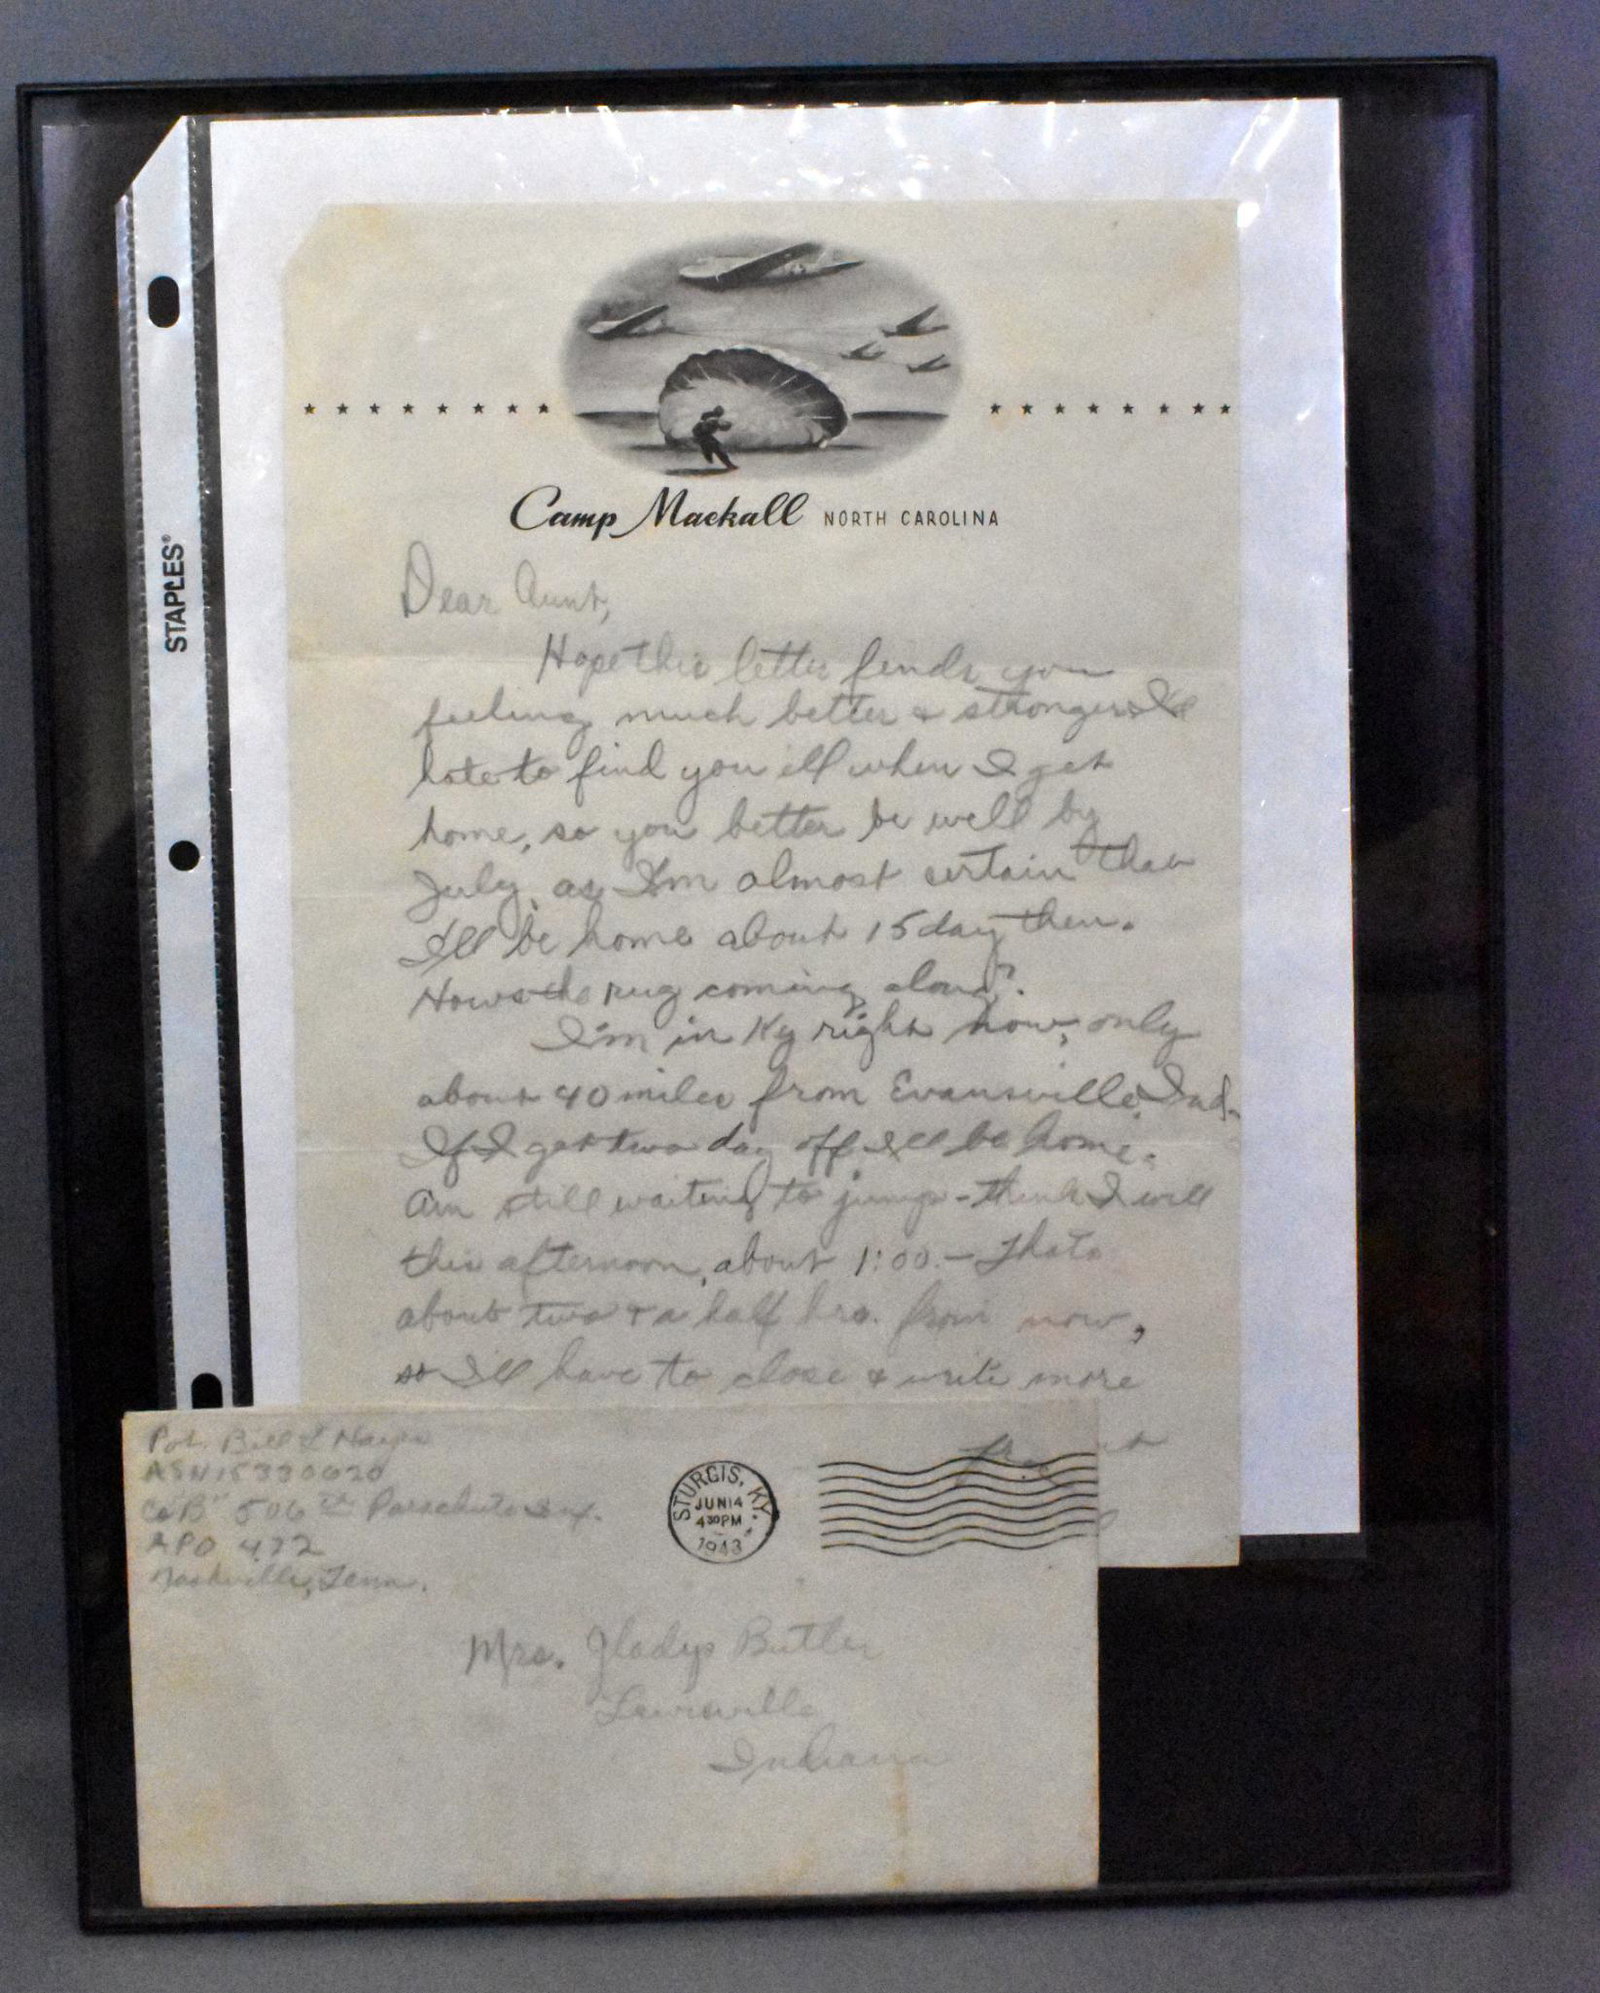 STAPLES®
Camp Mackall NORTH CAROLINA
Dear Aunt,
Hope this letter finds you
feeling much better & stronger. I'd
hate to find you ill when I get
home, so you better be well by
July, as I'm almost certain that
I'll be home about 15 day then.
Hows the rug coming along?
I'm in Ky right now, only
about 40 miles from Evansville, Ind.
If I get two day off I'll be home.
Am still waiting to jump - think I will
this afternoon, about 1:00. - Thats
about two & a half hrs. from now,
so I'll have to close & write more
Pvt. Bill
ASN 15330620
Co "B" 506th Parachute Inf.
APO 472
Nashville, Tenn.
STURGIS, KY.
JUN 14
430 PM
1943
Mrs. Gladys Butler
Indiana